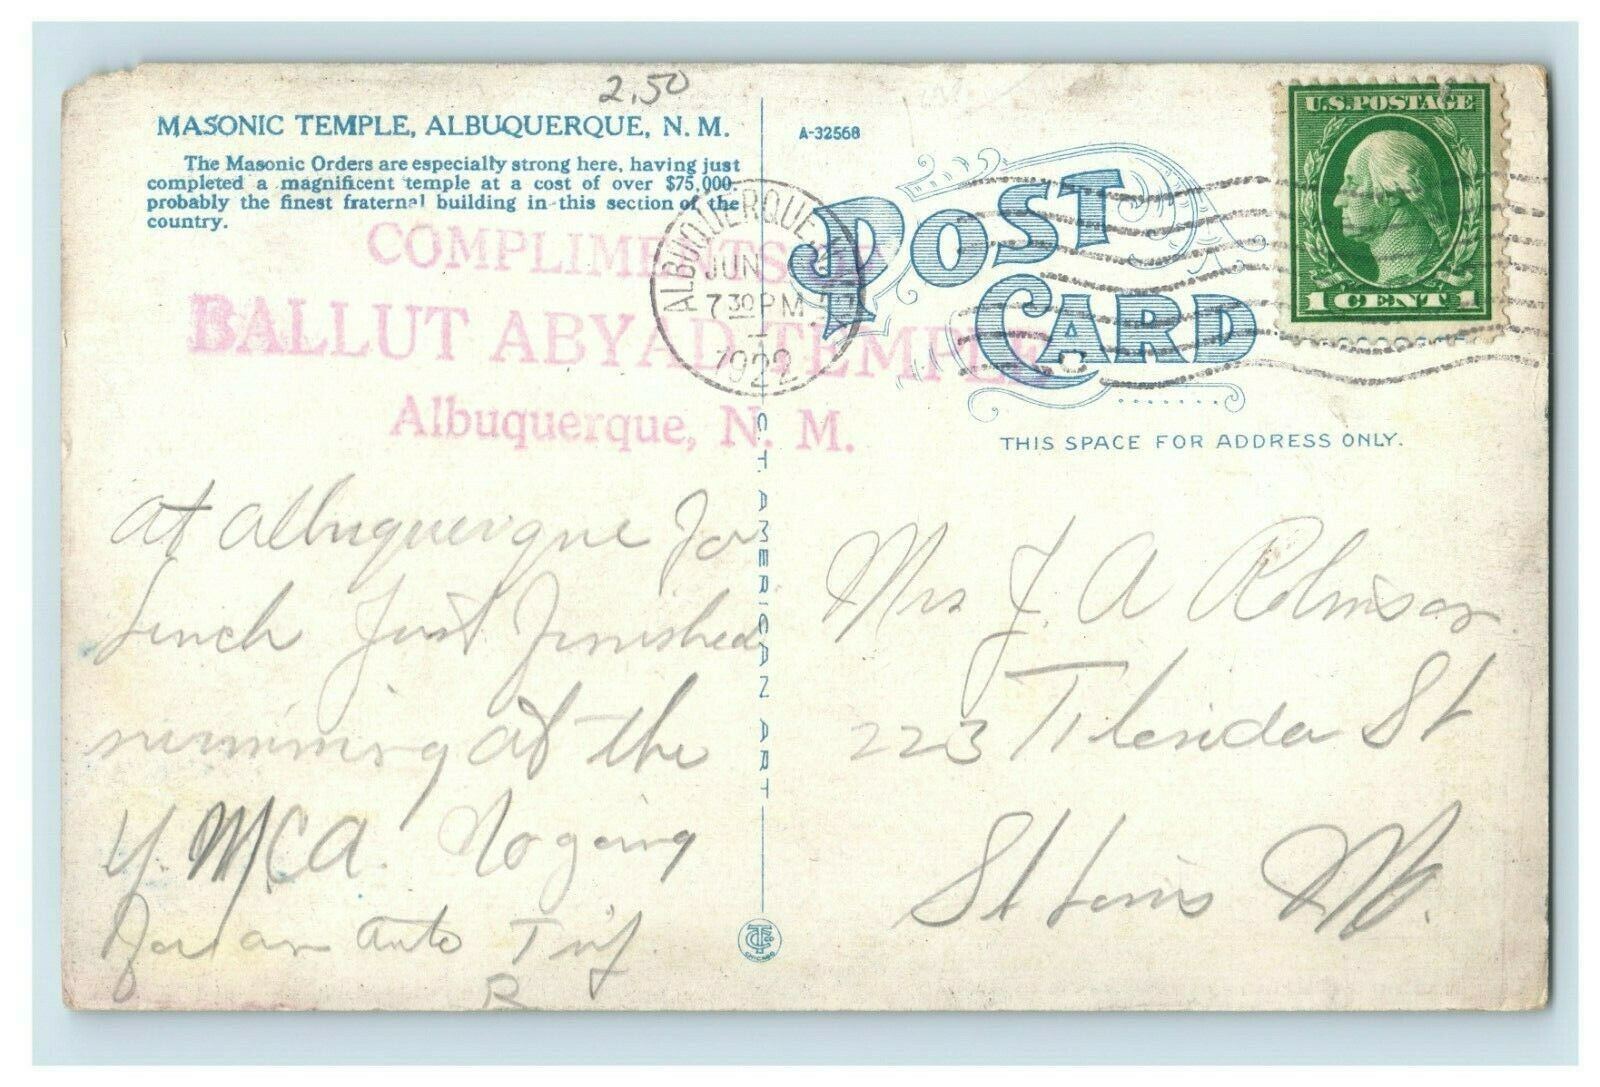 2.50
MASONIC TEMPLE, ALBUQUERQUE, N. M.
The Masonic Orders are especially strong here, having just
completed a magnificent temple at a cost of over $75,000,
probably the finest fraternal building in this section of the
country.
COMPLIMENTS OF
BALLUT ABYAD TEMPLE
Albuquerque, N. M.
at Albuquerque for
Lunch Just Finished
swimming at the
Y. M C A. No going
for an auto Trip
R
C. T. AMERICAN ART
CHICAGO
A-32568
POST CARD
ALBUQUERQUE
JUN
7 30 PM
1922
U.S. POSTAGE
1 CENT 1
THIS SPACE FOR ADDRESS ONLY.
Mrs J. A Robinson
223 Florida St
St Louis Mo.